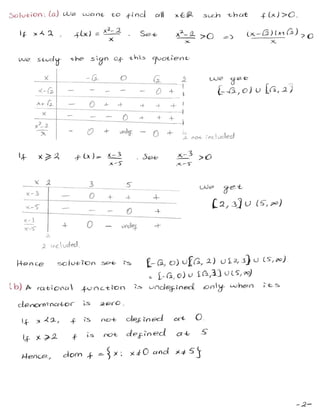 Solution: (a) We want to find all x∈ℝ such that f(x)>0.
If x<2, f(x) = x²-2 / x. Set x²-2 / x > 0 => (x-√2)(x+√2) / x > 0
we study the sign of this quotient
x -√2 0 √2 2
x-√2 - - - - - 0 + |
x+√2 - 0 + + + + |
x - - - 0 + + |
x²-2 / x - 0 + undef - 0 + |
2 non included
we get
[-√2, 0) ∪ [√2, 2)
If x ≥ 2 f(x) = x-3 / x-5. Set x-3 / x-5 > 0
x 2 3 5
x-3 - 0 + + +
x-5 - - - 0 +
x-3 / x-5 + 0 - undef +
2 included
we get
[2, 3] ∪ (5, ∞)
Hence solution set is [-√2, 0) ∪ [√2, 2) ∪ [2, 3] ∪ (5, ∞)
= [-√2, 0) ∪ [√2, 3] ∪ (5, ∞)
(b) A rational function is undefined only when its
denominator is zero.
If x<2, f is not defined at 0.
If x≥2 f is not defined at 5
Hence, dom f = {x; x≠0 and x≠5}
-2-